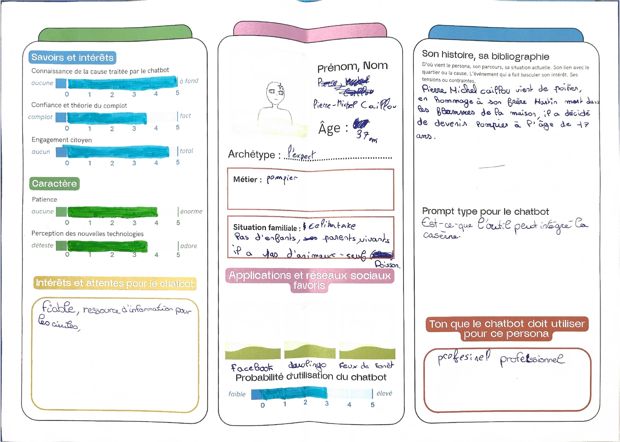 Savoirs et intérêts
Connaissance de la cause traitée par le chatbot
aucune
à fond
0 1 2 3 4 5
Confiance et théorie du complot
complot
fact
0 1 2 3 4 5
Engagement citoyen
aucun
total
0 1 2 3 4 5
Caractère
Patience
aucune
énorme
0 1 2 3 4 5
Perception des nouvelles technologies
déteste
adore
0 1 2 3 4 5
Intérêts et attentes pour le chatbot
Fiable, ressource d'information pour
les civiles,
Prénom, Nom
Pierre-Michel Caillou
Âge :
37 m
Archétype : l'expert
Métier : pompier
Situation familiale : célibataire
Pas d'enfants, parents vivants
il a pas d'animaux - sauf
Poisson
Applications et réseaux sociaux
favoris
FaceBook duolingo Feux de forêt
Probabilité d'utilisation du chatbot
faible
élevé
0 1 2 3 4 5
Son histoire, sa bibliographie
D'où vient le persona, son parcours, sa situation actuelle. Son lien avec le
quartier ou la cause. L'événement qui a fait basculer son intérêt. Ses
tensions ou contraintes.
Pierre Michel caillou vient de poitier,
en hommage à son frère Martin mort dans
les flammes de la maison, il a décidé
de devenir pompier à l'âge de 17
ans.
Prompt type pour le chatbot
Est-ce-que l'outil peut intégré la
caserne
Ton que le chatbot doit utiliser
pour ce persona
profesinel professionnel